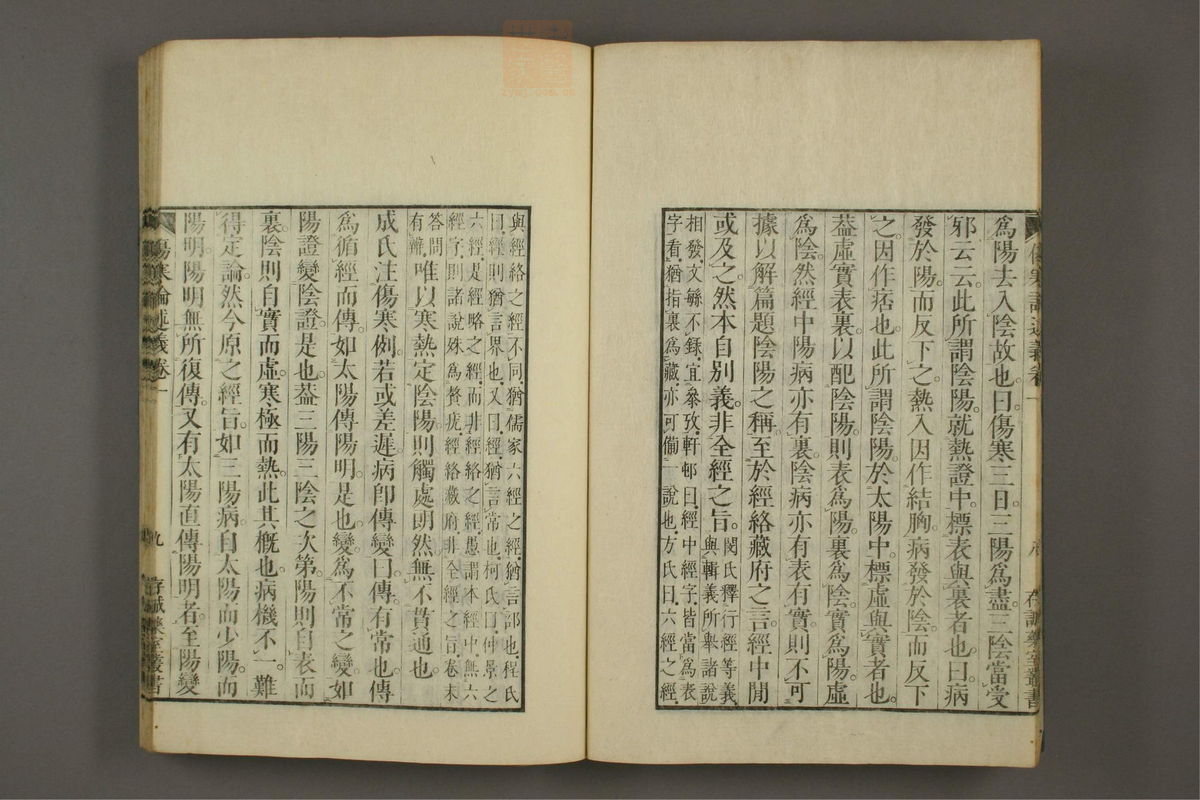 爲陽去入陰故也。曰傷寒三日三陽爲盡三陰當受
邪云云。此所謂陰陽。就熱證中。標表與裏者也。曰病
發於陽。而反下之熱入因作結胸。病發於陰。而反下
之。因作痞也。此所謂陰陽。於太陽中。標虛與實者也。
葢虛實表裏。以配陰陽。則表爲陽。裏爲陰。實爲陽。虛
爲陰。然經中陽病亦有裏。陰病亦有表有實。則不可
據以解篇題陰陽之稱。至於經絡藏府之言。經中閒
或及之。然本自別義。非全經之旨。
閔氏釋行經等義。
與輯義所舉諸說
相發。文緐不錄。宜參攷。軒邨曰。經中經字。皆當爲表
字看。猶指裏爲藏。亦可備一說也。方氏曰。六經之經。
傷寒論述義卷一
八
存誠藥室叢書
與經絡之經不同。猶儒家六經之經。猶言部也。程氏
曰。經則猶言界也。又曰。經猶言常也。柯氏曰。仲景之
六經。是經略之經。而非經絡之經。愚謂本經中。無六
經字。則諸說殊爲贅疣。經絡藏府。非全經之旨。卷末
答問
有辨。
唯以寒熱定陰陽。則觸處朗然。無不貫通也。
成氏注傷寒例。若或差遲。病卽傳變曰。傳有常也。傳
爲循經而傳。如太陽傳陽明。是也。變爲不常之變。如
陽證變陰證。是也。葢三陽三陰之次第。陽則自表而
裏。陰則自實而虛。寒極而熱。此其概也。病機不一。難
得定論。然今原之經旨。如三陽病。自太陽而少陽。而
陽明。陽明無所復傳。又有太陽直傳陽明者。至陽變
傷寒論述義卷一
九
存誠藥室叢書